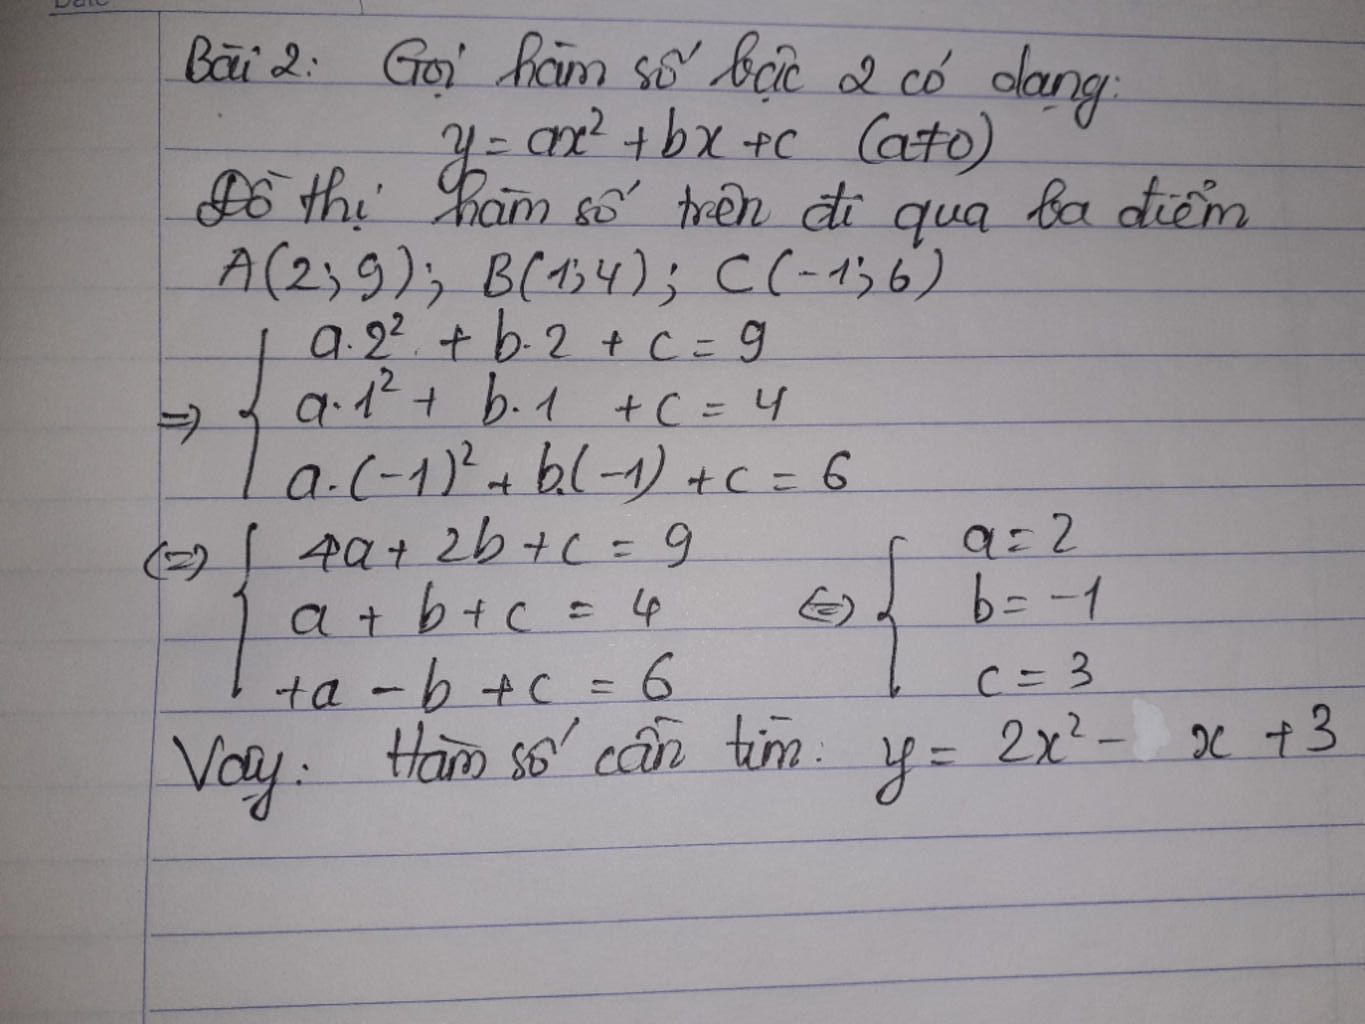 Date
Bài 2: Gọi hàm số bậc 2 có dạng:
y = ax² + bx + c (a≠0)
Đồ thị hàm số trên đi qua ba điểm
A(2; 9); B(1; 4); C(-1; 6)
a.2² + b.2 + c = 9
⇒ { a.1² + b.1 + c = 4
a.(-1)² + b.(-1) + c = 6
⇔ { 4a + 2b + c = 9
a + b + c = 4
+a - b + c = 6
⇔ { a = 2
b = -1
c = 3
Vậy: Hàm số cần tìm: y = 2x² - x + 3